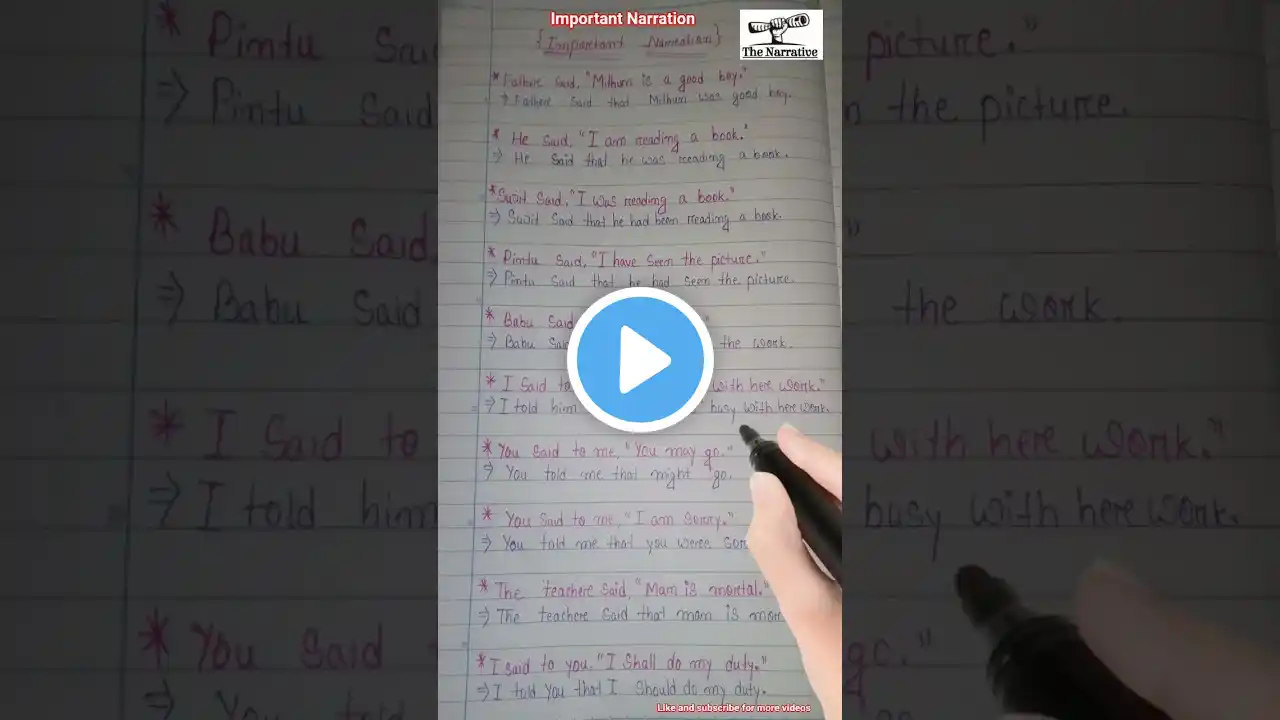 Important Narration
The Narrative
{Important Narration}
* Fathere Said, "Mithun is a good boy."
⇒ Fathere Said that Mithun was good boy.
* He Said, "I am reading a book."
⇒ He Said that he was reading a book.
* Said, "I was reading a book."
⇒ Said that he had been reading a book.
* Pintu Said, "I have Seen the picture."
⇒ Pintu Said that he had seen the picture.
* Babu Said
⇒ Babu Said the work.
* I Said to with here work."
⇒ I told him busy with here work.
* You Said to me, "You may go."
⇒ You told me that might go.
* You Said to me, "I am Sorry."
⇒ You told me that you were
* The teachere Said, "Man is mortal."
⇒ The teachere Said that man is
* I said to you, "I Shall do my duty."
⇒ I told you that I Should do my duty.
Like and subscribe for more videos